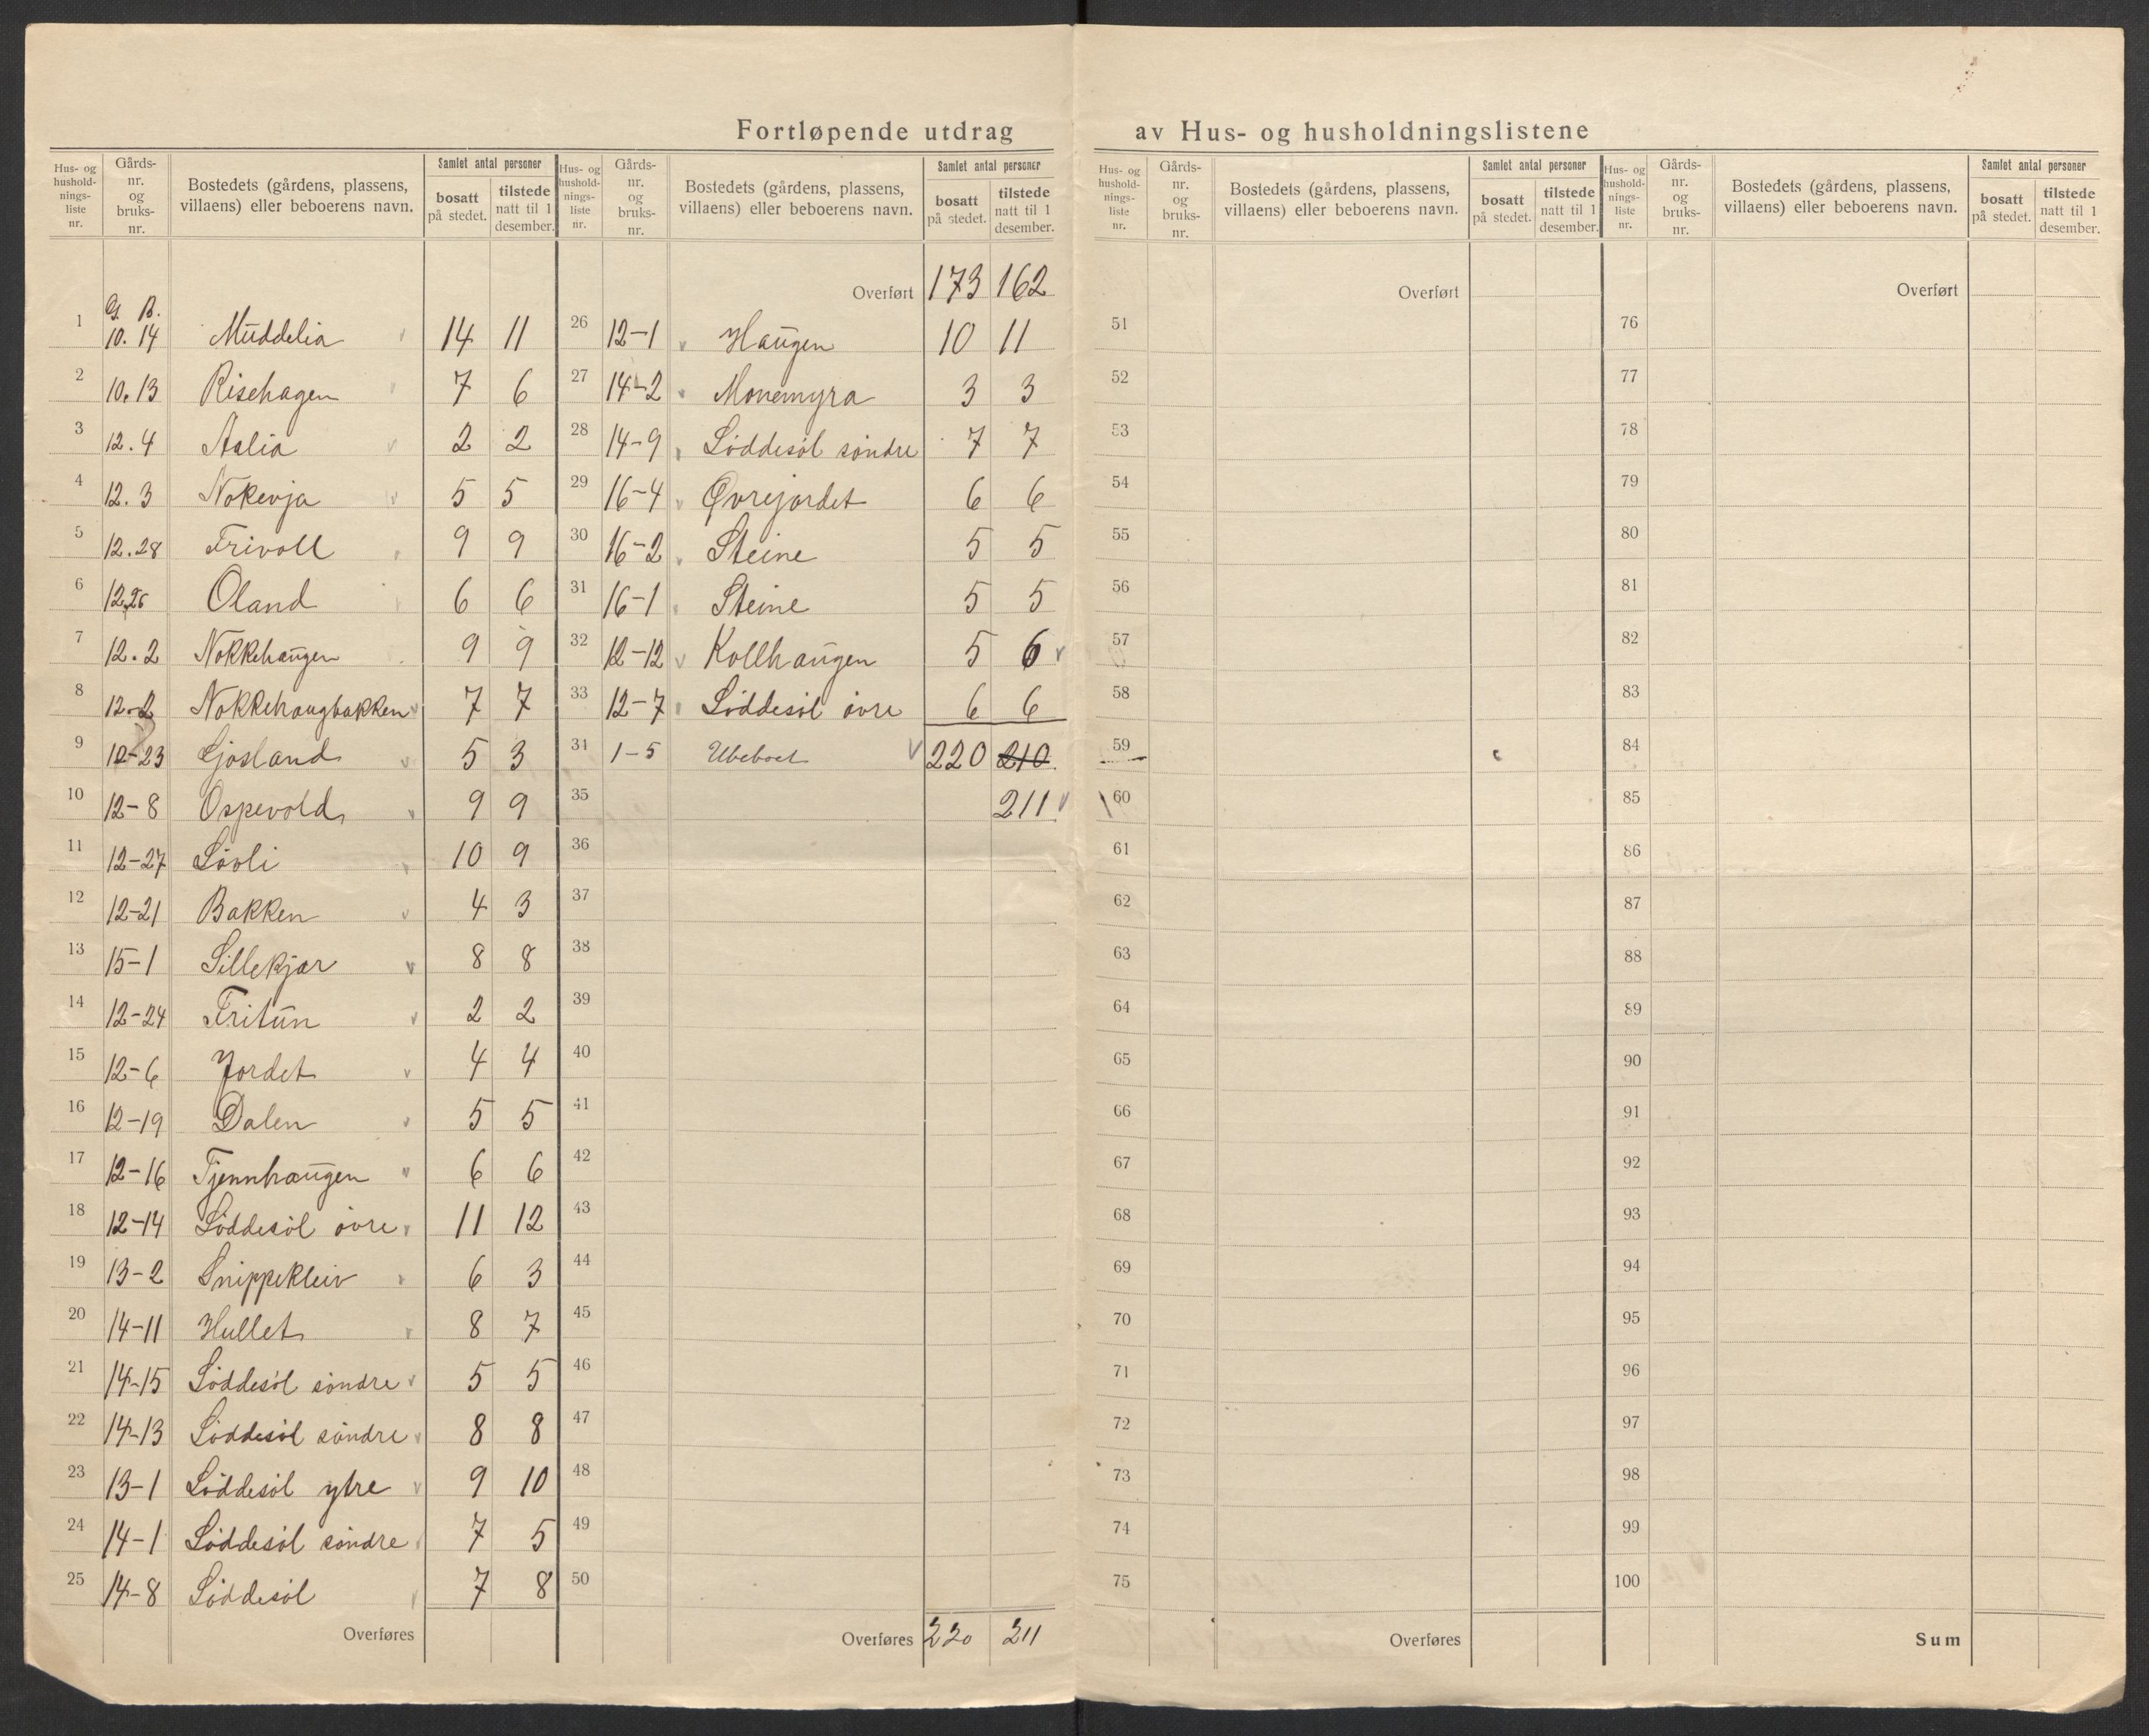 Fortløpende utdrag av Hus- og husholdningslistene
Hus- og hushold-nings-liste nr. | Gårds-nr. og bruks-nr. | Bostedets (gårdens, plassens, villaens) eller beboerens navn. | Samlet antal personer | bosatt på stedet. | tilstede natt til 1 desember.
G. B.
1 10. 14 Muddelia 14 11
2 10. 13 Risehagen 7 6
3 12. 4 Aslia 2 2
4 12. 3 Nokevja 5 5
5 12. 28 Frivoll 9 9
6 12. Oland 6 6
7 12. 2 Nokkehaugen 9 9
8 12-2 Nokkehaugbakken 7 7
9 12-23 Gjosland 5 3
10 12-8 Ospevold 9 9
11 12-27 Løvli 10 9
12 12-21 Bakken 4 3
13 15-1 Sillekjær 8 8
14 12-24 Fritun 2 2
15 12-6 Jordet 4 4
16 12-19 Dalen 5 5
17 12-16 Tjennhaugen 6 6
18 12-14 Løddesøl øvre 11 12
19 13-2 Snippekleiv 6 3
20 14-11 Hullet 8 7
21 14-15 Løddesøl søndre 5 5
22 14-13 Løddesøl søndre 8 8
23 13-1 Løddesøl ytre 9 10
24 14-1 Løddesøl søndre 7 5
25 14-8 Løddesøl 7 8
Overføres
Hus- og hushold-nings-liste nr. | Gårds-nr. og bruks-nr. | Bostedets (gårdens, plassens, villaens) eller beboerens navn. | Samlet antal personer | bosatt på stedet. | tilstede natt til 1 desember.
Overført 173 162
26 12-1 Haugen 10 11
27 14-2 Monemyra 3 3
28 14-9 Løddesøl søndre 7 7
29 16-4 Øvrejordet 6 6
30 16-2 Steine 5 5
31 16-1 Steine 5 5
32 12-12 Kollhaugen 5 6
33 12-7 Løddesøl øvre 6 6
31 1-5 Ubeboet 220 210
35 211
36
37
38
39
40
41
42
43
44
45
46
47
48
49
50
Overføres 220 211
Hus- og hushold-nings-liste nr. | Gårds-nr. og bruks-nr. | Bostedets (gårdens, plassens, villaens) eller beboerens navn. | Samlet antal personer | bosatt på stedet. | tilstede natt til 1 desember.
Overført
51
52
53
54
55
56
57
58
59
60
61
62
63
64
65
66
67
68
69
70
71
72
73
74
75
Overføres
Hus- og hushold-nings-liste nr. | Gårds-nr. og bruks-nr. | Bostedets (gårdens, plassens, villaens) eller beboerens navn. | Samlet antal personer | bosatt på stedet. | tilstede natt til 1 desember.
Overført
76
77
78
79
80
81
82
83
84
85
86
87
88
89
90
91
92
93
94
95
96
97
98
99
100
Sum